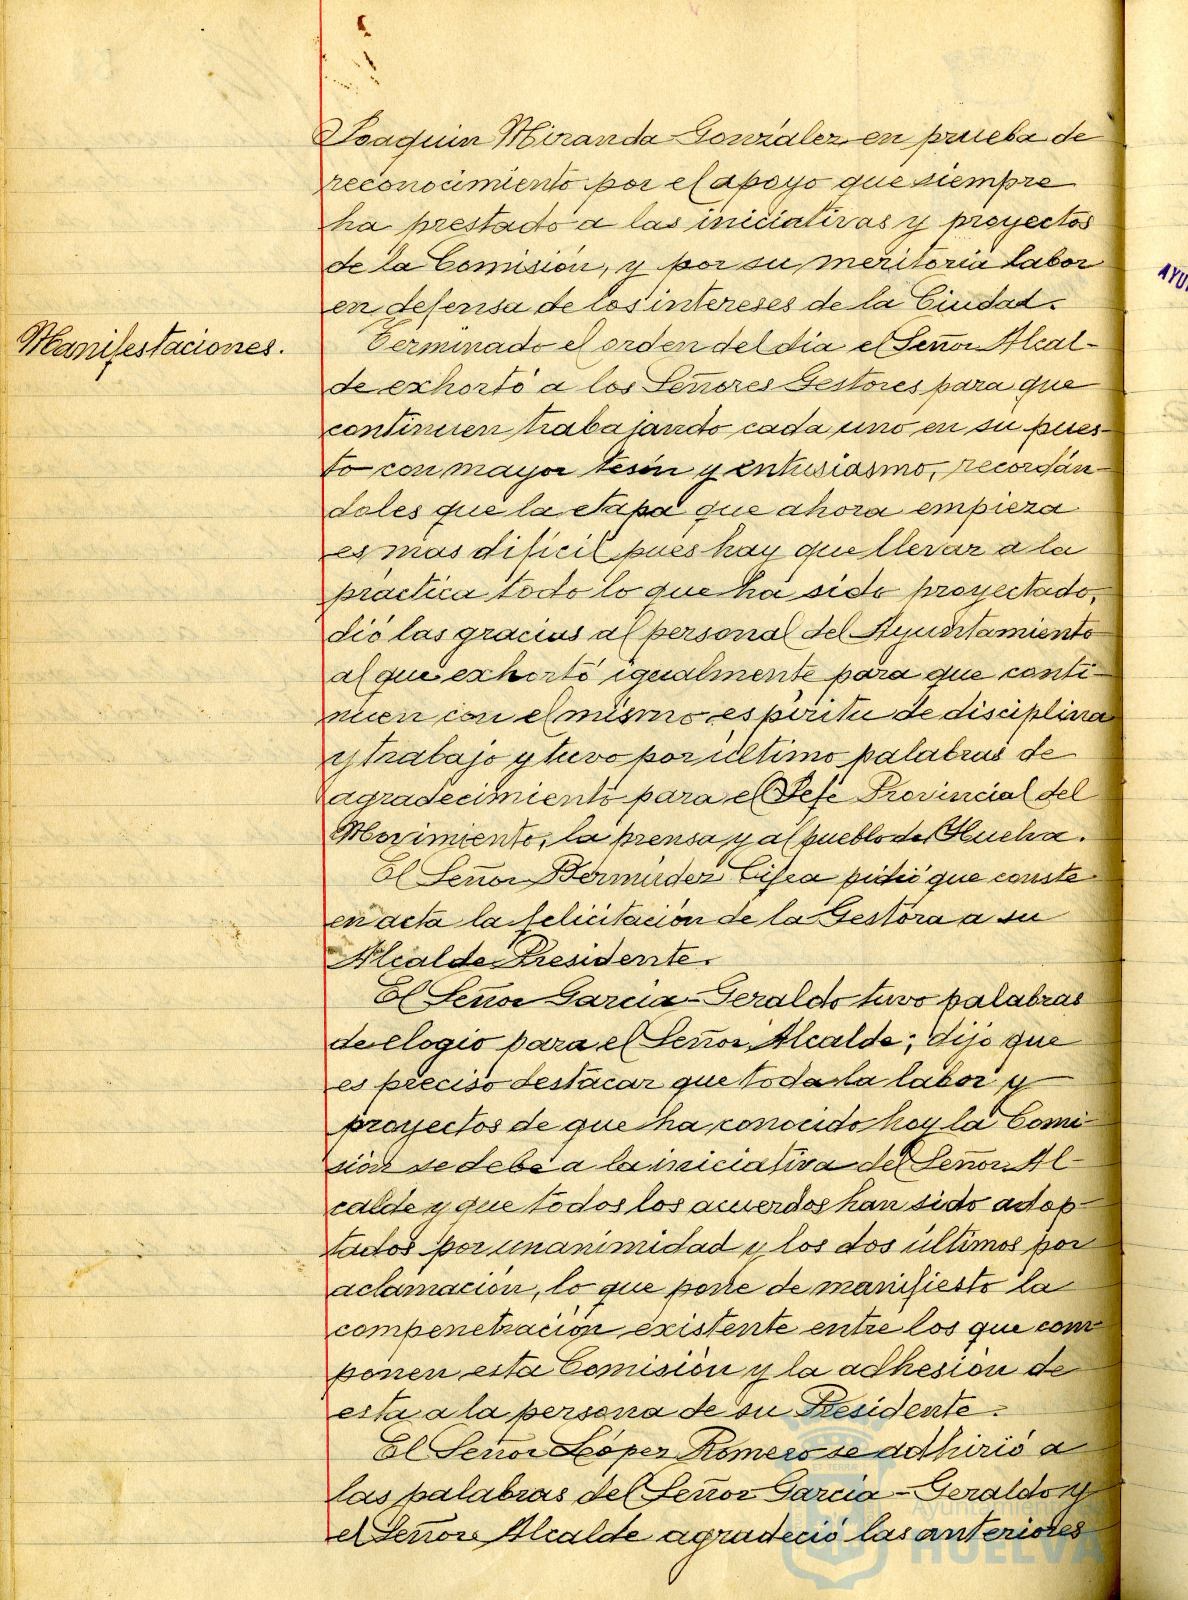 Joaquin Miranda Gonzalez en prueba de
reconocimiento por el apoyo que siempre
ha prestado a las iniciativas y proyectos
de la Comisión, y por su meritoria labor
en defensa de los intereses de la Ciudad.
Manifestaciones.
Terminado el orden del dia el Señor Alcal-
de exhortó a los Señores Gestores para que
continuen trabajando cada uno en su pues-
to con mayor tesón y entusiasmo, recordán-
doles que la etapa que ahora empieza
es mas dificil pues hay que llevar a la
práctica todo lo que ha sido proyectado,
dió las gracias al personal del Ayuntamiento
al que exhortó igualmente para que conti-
nuen con el mismo espiritu de disciplina
y trabajo y tuvo por último palabras de
agradecimiento para el Jefe Provincial del
Movimiento, la prensa y al pueblo de Huelva.
El Señor Bermúdez Cifea pidió que conste
en acta la felicitación de la Gestora a su
Alcalde Presidente.
El Señor Garcia-Geraldo tuvo palabras
de elogio para el Señor Alcalde; dijo que
es preciso destacar que toda la labor y
proyectos de que ha conocido hoy la Comi-
sión se debe a la iniciativa del Señor Al-
calde y que todos los acuerdos han sido adop-
tados por unanimidad y los dos últimos por
aclamación, lo que pone de manifiesto la
compenetración existente entre los que com-
ponen esta Comisión y la adhesión de
esta a la persona de su Presidente.
El Señor López Romero se adhirió a
las palabras del Señor Garcia-Geraldo y
el Señor Alcalde agradeció las anteriores
Ayuntamiento
HUELVA
AYU